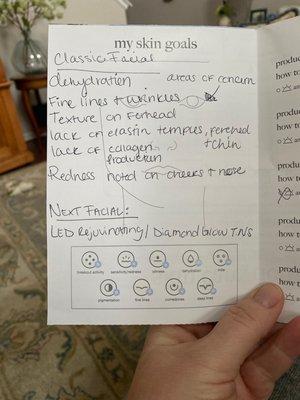 my skin goals
Classic Facial
dehydration areas of concern
Fine lines + wrinkles
Texture on forhead
lack of elastin temples, forehead
lack of collagen + chin
production
Redness noted on cheeks + nose
NEXT FACIAL:
LED Rejuvinating / Diamond Glow TNS
breakout activity sensitivity/redness oiliness dehydration milia
pigmentation fine lines comedones deep lines
produc
how t
produ
how t
produ
how to
produ
how to